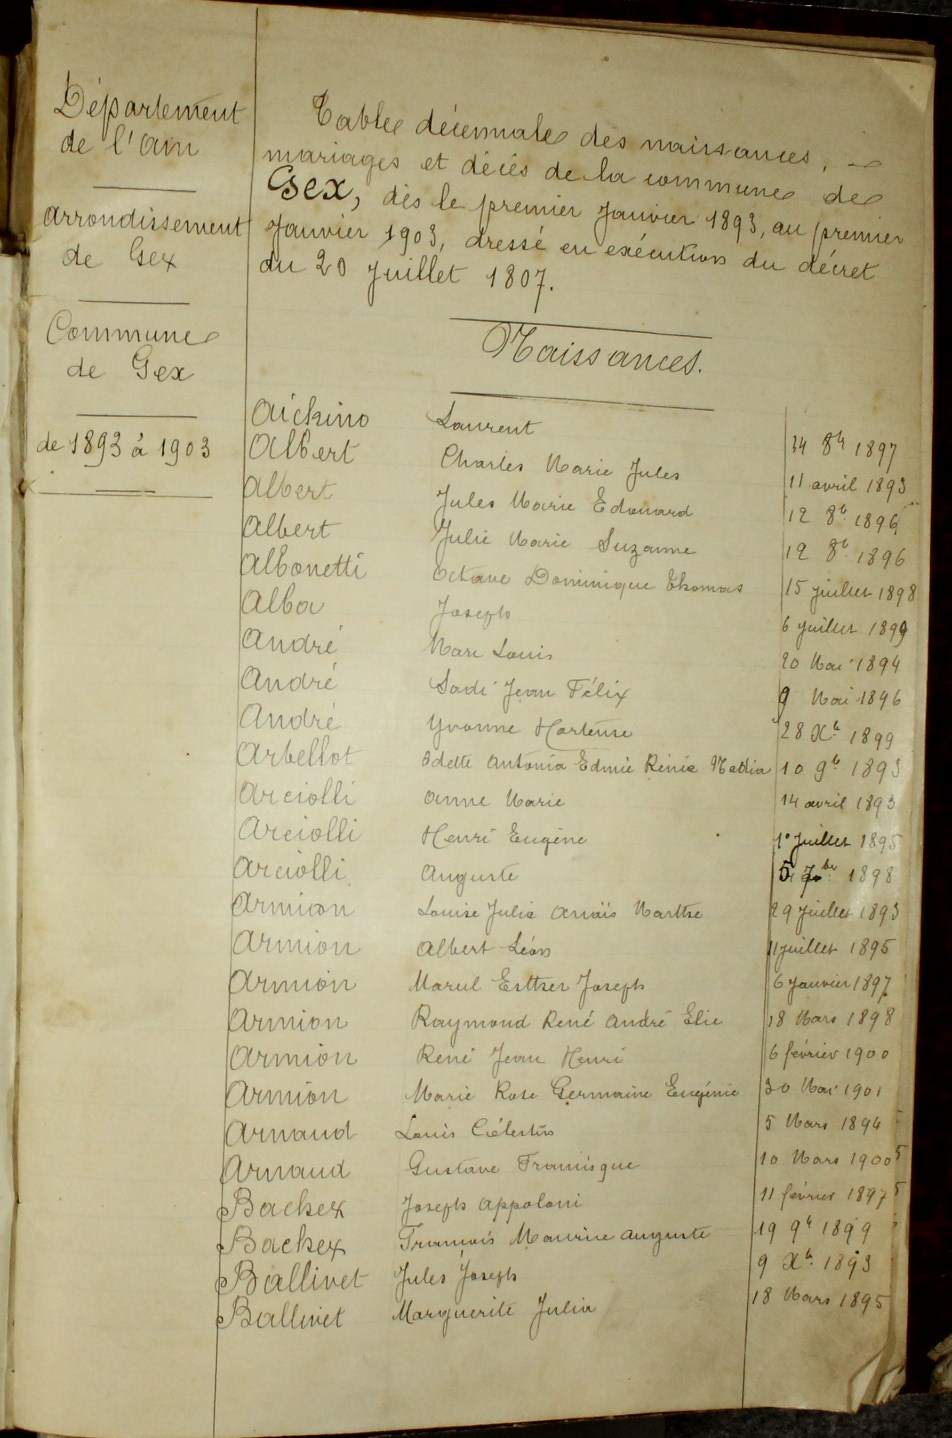 Département
de l'Ain
Arrondissement
de Gex
Commune
de Gex
de 1893 à 1903
Table décennale des naissances,
mariages et décès de la commune de
Gex, dès le premier Janvier 1893, au premier
Janvier 1903, dressé en exécution du décret
du 20 Juillet 1807.
Naissances.
Aickino Laurent 8bre 1897
Albert Charles Marie Jules 11 avril 1893
Albert Jules Marie Edouard 12 8b. 1896
Albert Julie Marie Suzanne 12 8b. 1896
Albonetti Octave Dominique Thomas 15 juillet 1898
Alba Joseph 6 juillet 1899
André Marc Louis 20 Mai 1894
André Sadi Jean Félix 9 Mai 1896
André Yvonne Hortense 28 Xb. 1899
Arbellot Odette Antonia Edmée Rénée 10 9b 1893
Arciolli Anne Marie 14 avril 1893
Arciolli Henri Eugène 1° Juillet 1895
Arciolli Auguste 5 1898
Armion Louise Julie Anaïs Marthe 29 juillet 1893
Armion Albert Léon 11 juillet 1895
Armion Marcel Esther Joseph 6 Janvier 1897
Armion Raymond René André Elie 18 Mars 1898
Armion René Jean Henri 6 février 1900
Armion Marie Rose Germaine Eugénie 30 Mai 1901
Arnaud Louis Célestin 5 Mars 1894
Arnaud Gustave Francisque 10 Mars 1900
Backex Joseph Appoloni 11 février 1897
Backex François Maurice Auguste 19 9b 1899
Ballivet Jules Joseph 9 Xb. 1893
Ballivet Marguerite Julia 18 Mars 1895